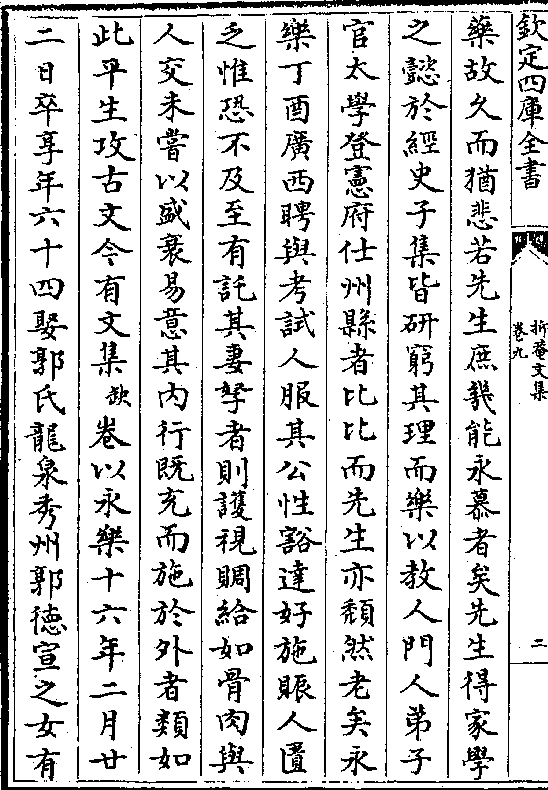 欽定四庫全書
抑菴文集
卷九
二
藥故久而猶悲若先生庶幾能永慕者矣先生得家學
之懿於經史子集皆研窮其理而樂以教人門人弟子
官太學登憲府仕州縣者比比而先生亦頽然老矣永
樂丁酉廣西聘與考試人服其公性豁達好施賑人匱
乏惟恐不及至有託其妻孥者則護視賙給如骨肉與
人交未嘗以盛衰易意其内行既充而施於外者類如
此平生攻古文今有文集缺卷以永樂十六年二月廿
二日卒享年六十四娶郭氏龍泉秀州郭德宣之女有